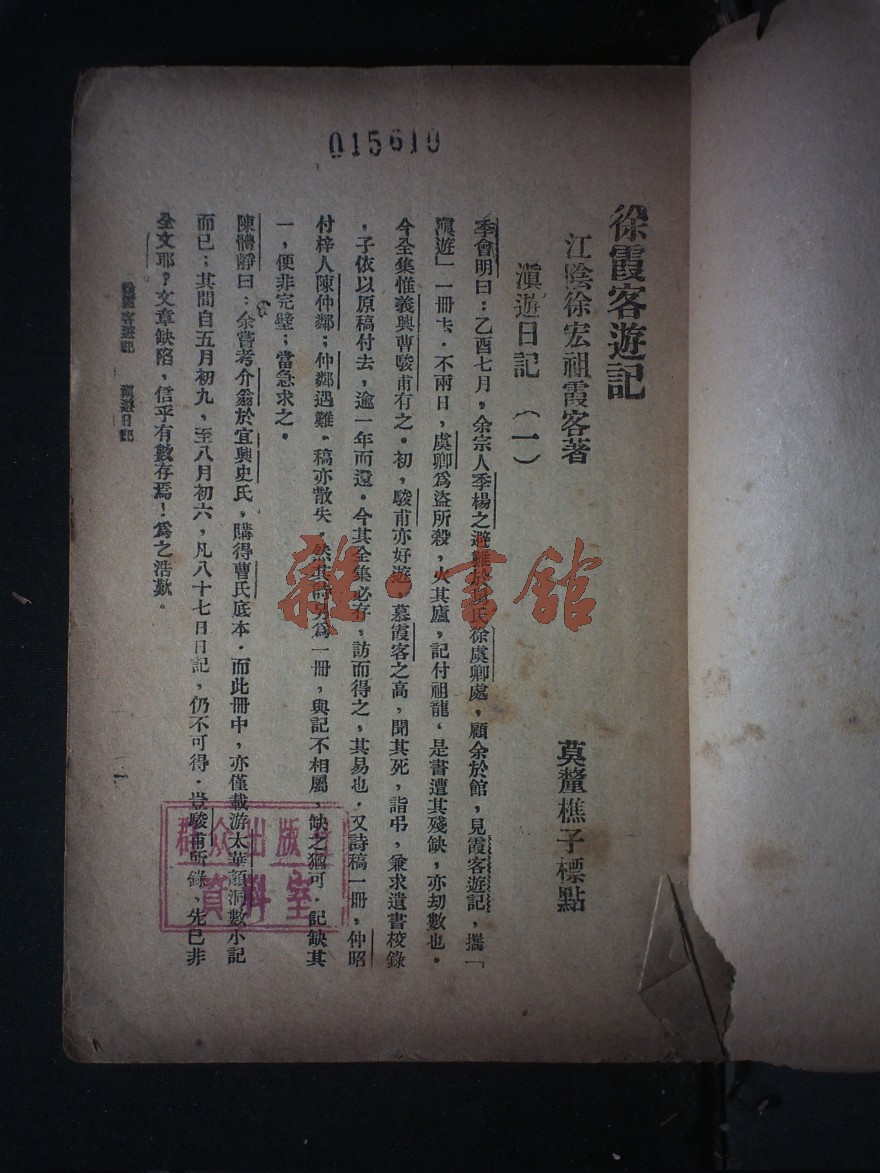 015610
徐霞客遊記
江陰徐宏祖霞客著
莫釐樵子標點
滇遊日記（一）
季會明曰：乙酉七月，余宗人季楊之避難於其氏徐虞卿處，顧余於館，見霞客遊記，攜「
滇遊」一冊去．不兩日，虞卿為盜所殺，火其廬，記付祖龍，是書遭其殘缺，亦劫數也．
今全集惟義興曹駿甫有之．初，駿甫亦好遊，慕霞客之高，聞其死，詣弔，兼求遺書校錄
，子依以原稿付去，逾一年而還．今其全集必存，訪而得之，其易也．又詩稿一冊，仲昭
付梓人陳仲鄰；仲鄰遇難．稿亦散失．然其詩另為一冊，與記不相屬，缺之猶可．記缺其
一，便非完壁；當急求之．
陳體靜曰：余嘗考介翁於宜興史氏，購得曹氏底本．而此冊中，亦僅載游太華顏洞數小記
而已；其間自五月初九，至八月初六，凡八十七日日記，仍不可得．豈駿甫所錄，先已非
全文耶？文章缺陷，信乎有數存焉！為之浩歎。
徐霞客遊記　滇遊日記
一
群众出版社
資料室
雜·書館